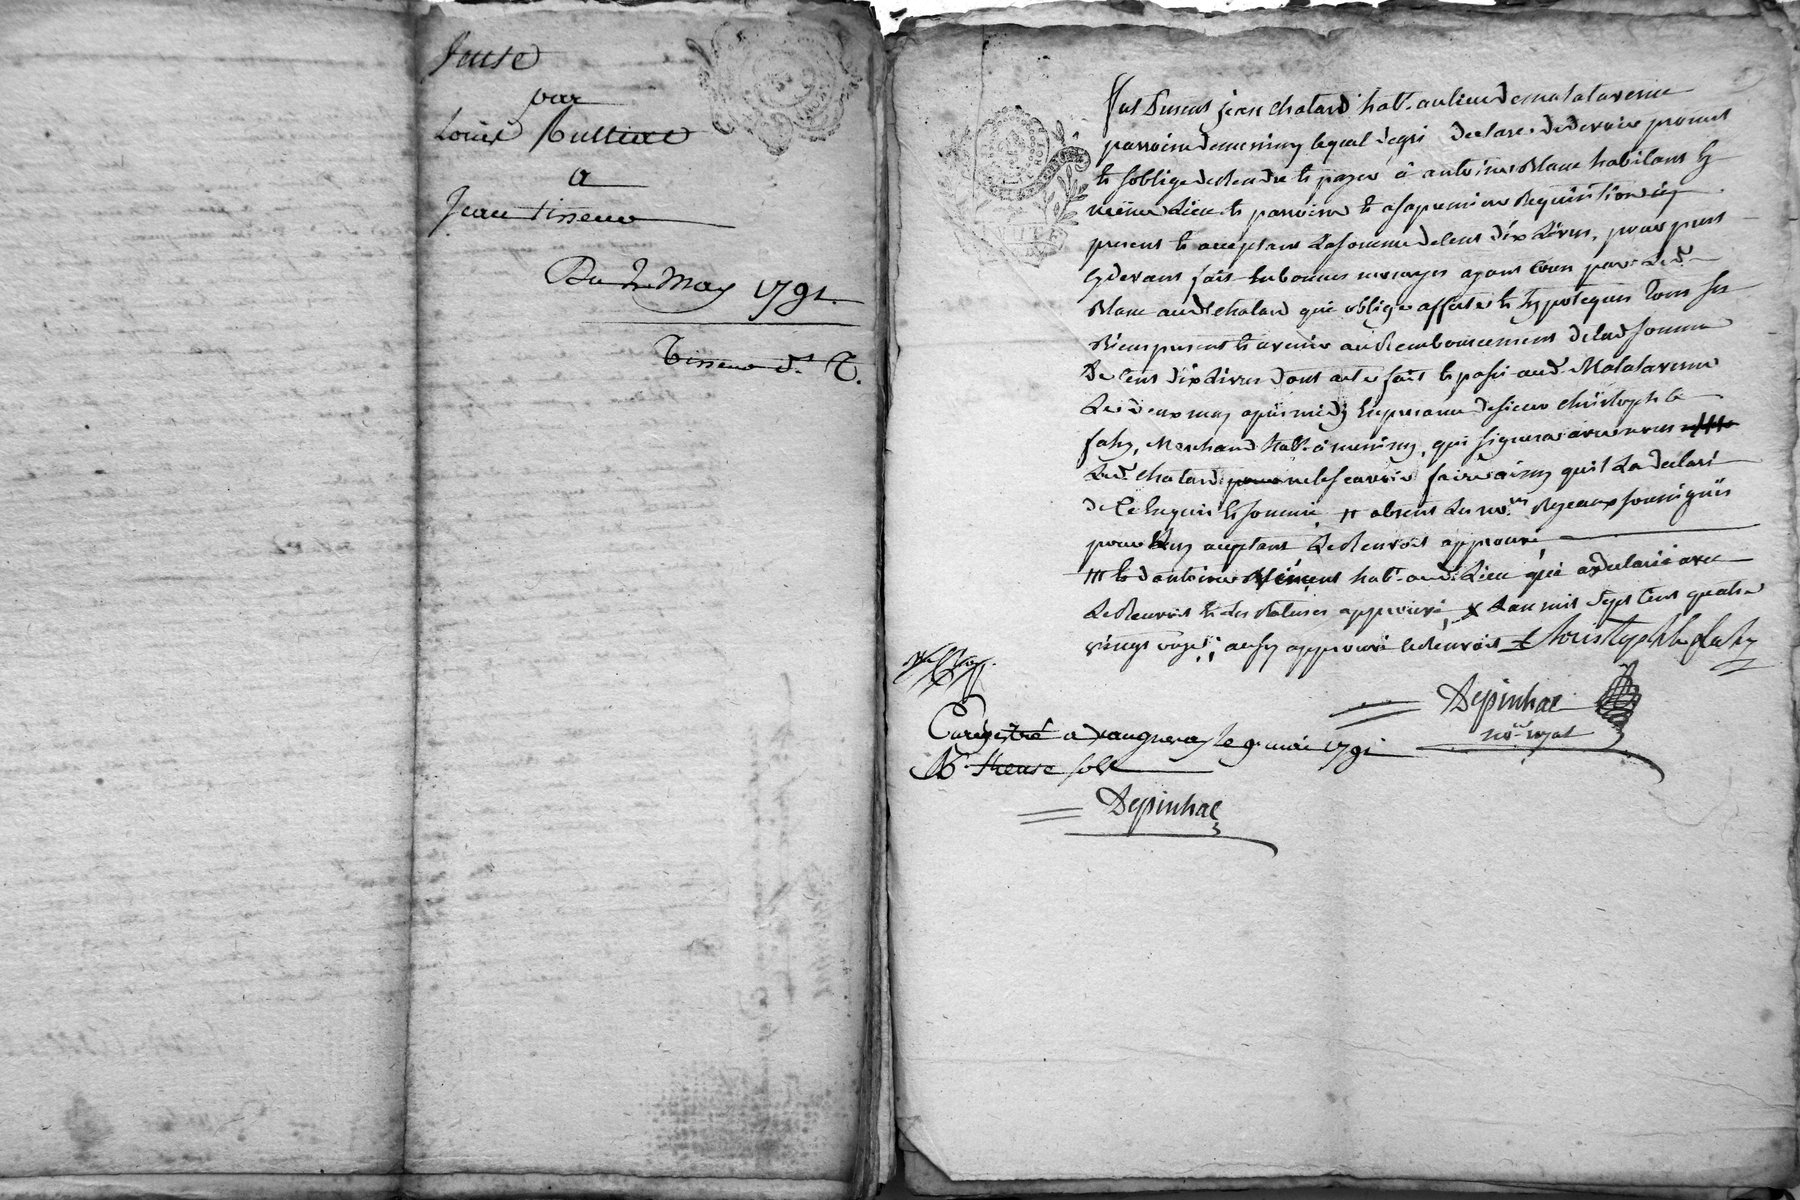 par
Louis
A
Jean Tisseur
Du 2 May 1791.
Tisseur
fut present jean chatard hab.t au lieu de malataverne
paroisse de lequel de gré declare devoir promet
et soblige de Rendre et payer à antoine Blanc habitant
même Lieu et paroisse et a sa premiere Requisition icy
present et acceptant La somme de Cent dix Livres, pour prest
cy devant fait en bonnes especes ayant cours par Led.
Blanc aud. chatard qui oblige affecte et hypoteque Tous ses
Biens present et avenir au Remboursement de lad. somme
De Cent dix Livres dont acte fait et passé aud. Malataverne
Le deux may après midy En presence de sieur christophle
fahy, Marchand hab.t à qui signera avec nous
Led. chatard ne sçavoir faire ainsy quil La declaré
de Ce Enquis et sommé, absent Les no.res Royaux soussignés
pour Luy acceptant Le Renvoi approuvé
et d'antoine hab.t aud. Lieu qui a declaré avec
Le Renvoi et Les Ratures approuvé, x Lan mil sept Cent quatre
vingt onze; aussy approuvé le Renvoi Christophle fahy
Depinhac
no.re royal
Enregistré a Vaugneray le 9 mai 1791
Depinhac